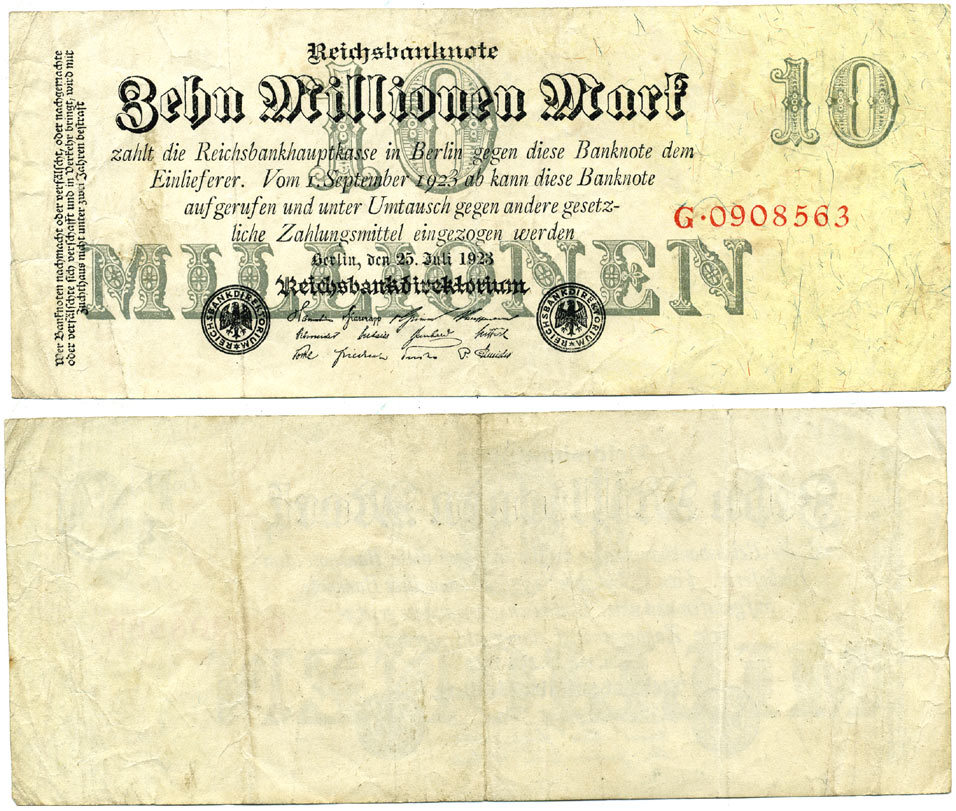 Reichsbanknote
Zehn Millionen Mark
10
10
zahlt die Reichsbankhauptkasse in Berlin gegen diese Banknote dem
Einlieferer. Vom 1. September 1923 ab kann diese Banknote
aufgerufen und unter Umtausch gegen andere gesetz-
liche Zahlungsmittel eingezogen werden
G·0908563
MILLIONEN
Berlin, den 25. Juli 1923
Reichsbankdirektorium
REICHSBANKDIREKTORIUM
REICHSBANKDIREKTORIUM
Wer Banknoten nachmacht oder verfälscht, oder nachgemachte
oder verfälschte sich verschafft und in Verkehr bringt, wird mit
Zuchthaus nicht unter zwei Jahren bestraft